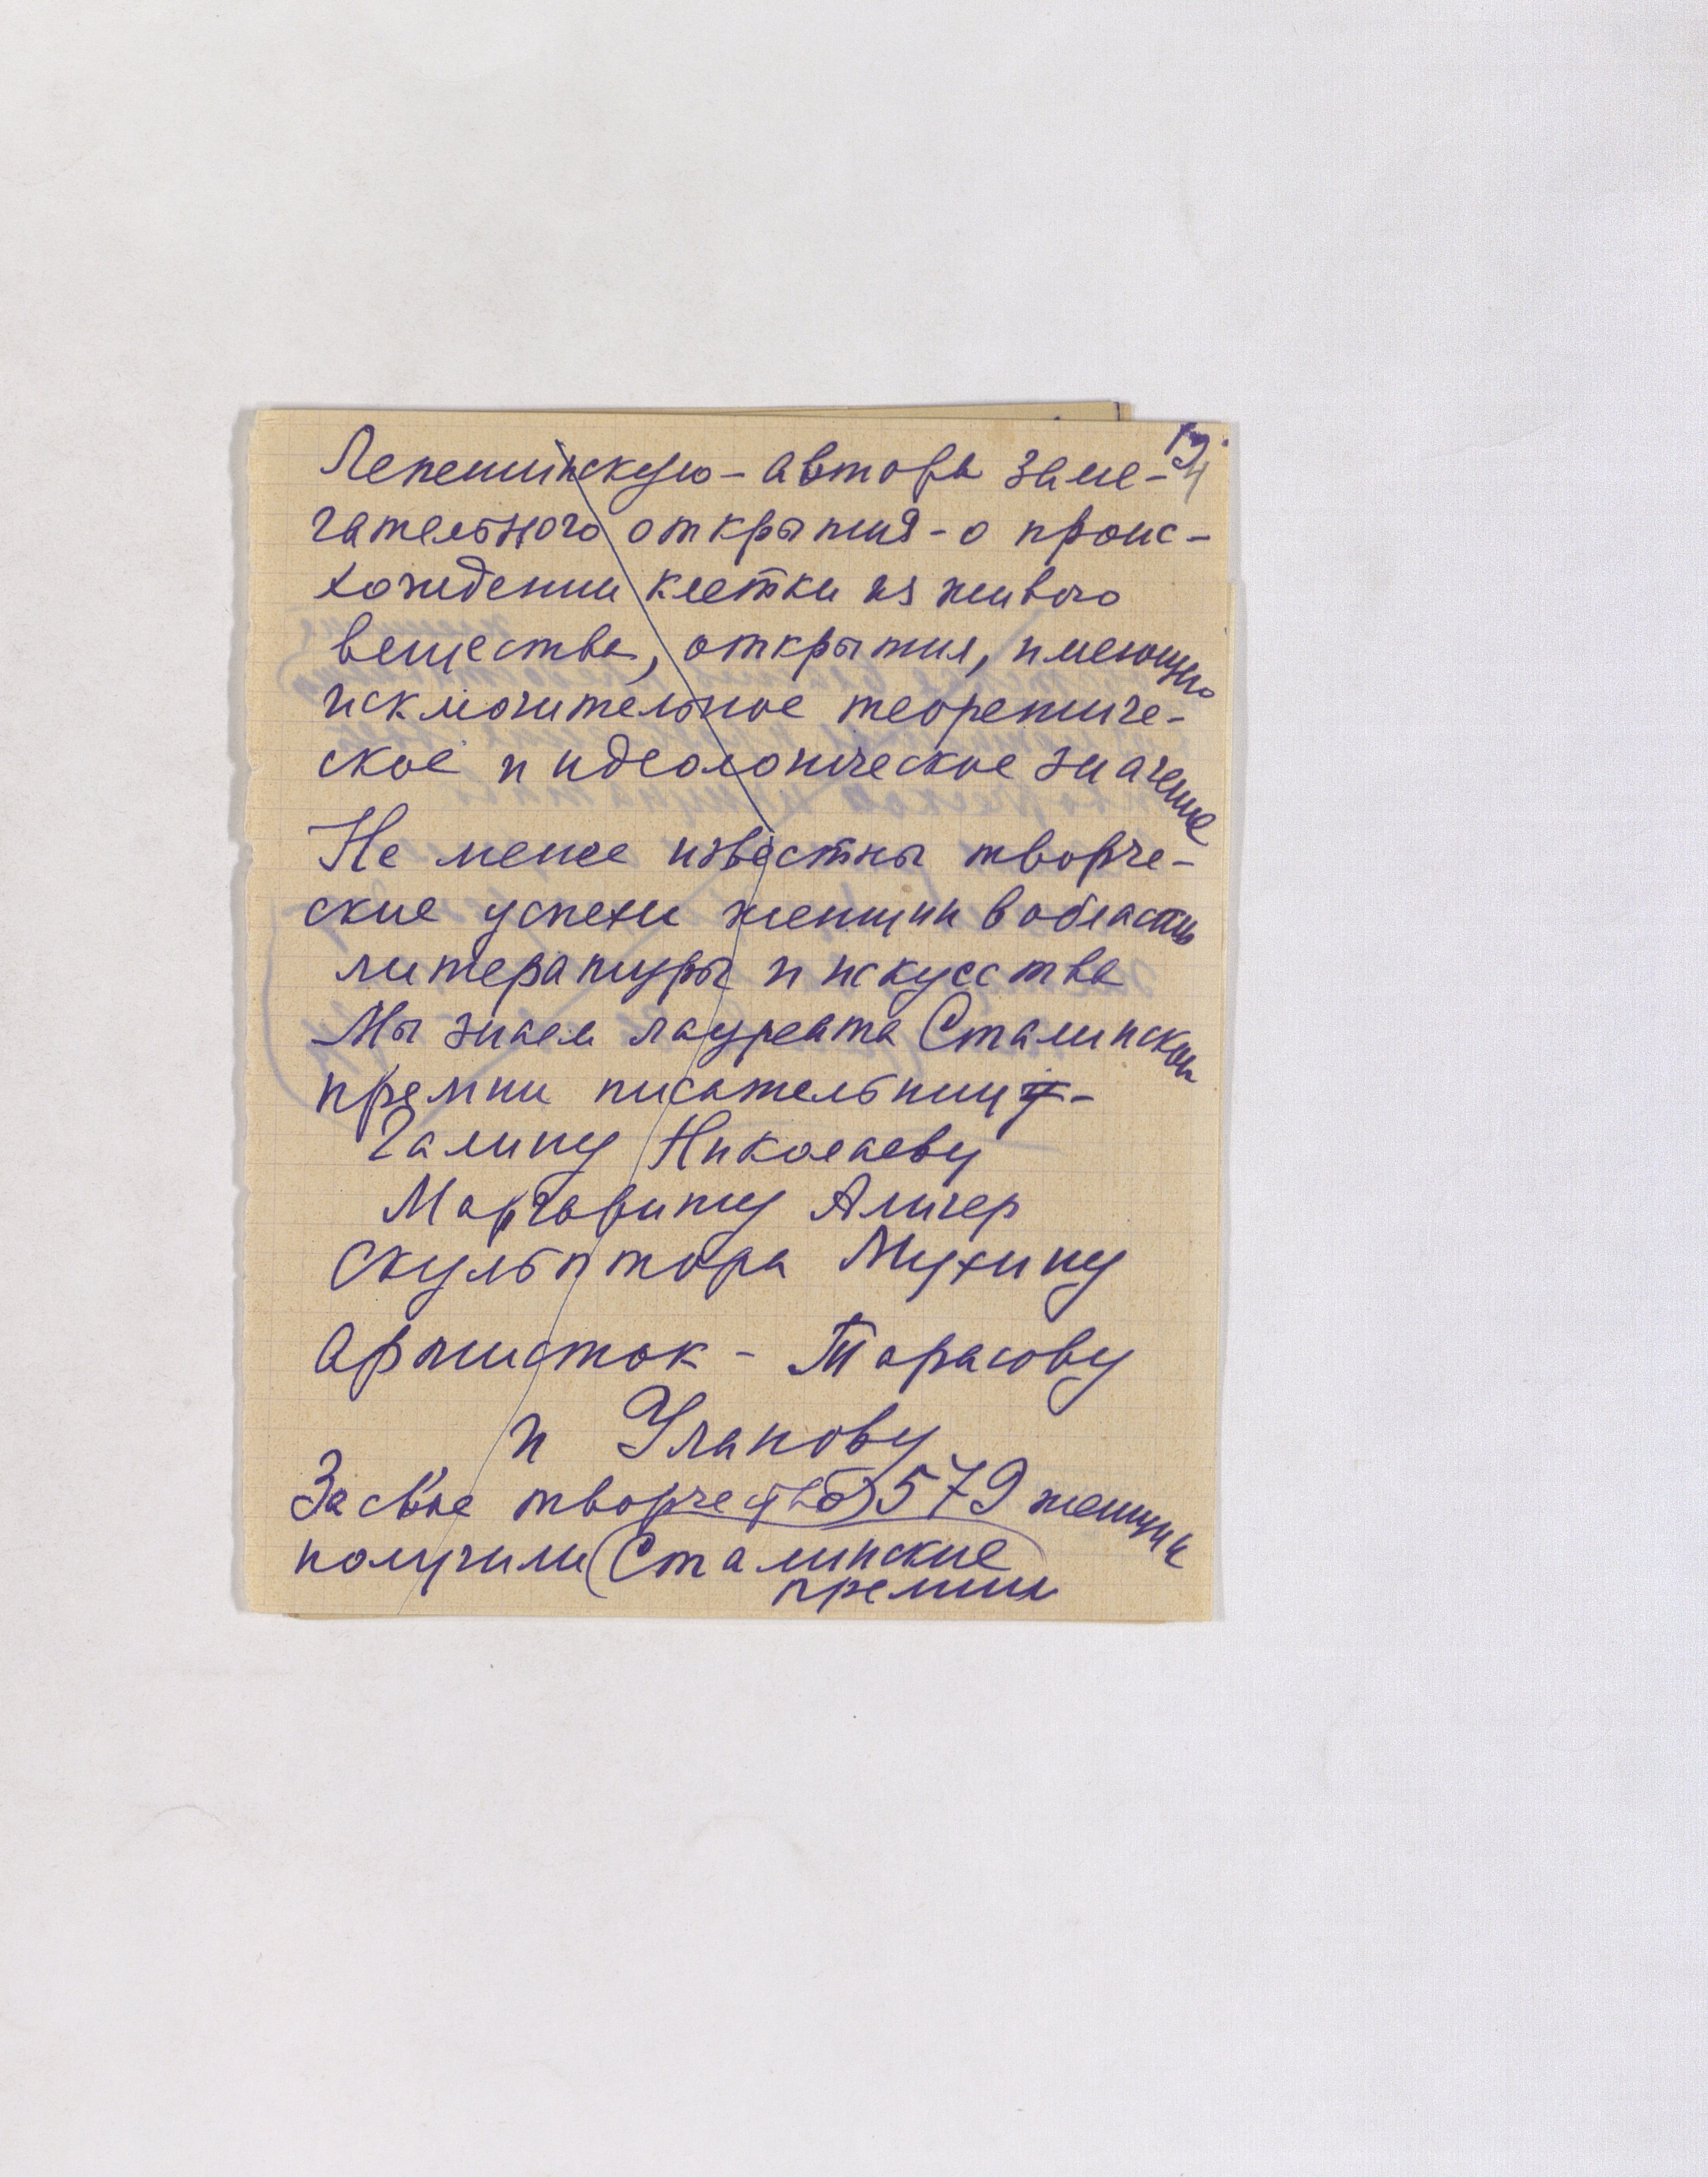 Лепешинскую - автора заме-
чательного открытия - о проис-
хождении клетки из живого
вещества, открытия, имеющего
исключительное теоретиче-
ское и идеологическое значение
Не менее известны творче-
ские успехи женщин в области
литературы и искусства
Мы знаем лауреата Сталинской
премии писательниц -
Галину Николаеву
Маргариту Алигер
Скульптора Мухину
Артисток - Тарасову
и Уланову
За свое творчество 579 женщин
получили Сталинские
премии